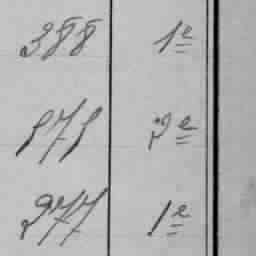 388 1e
575 2e
277 1e